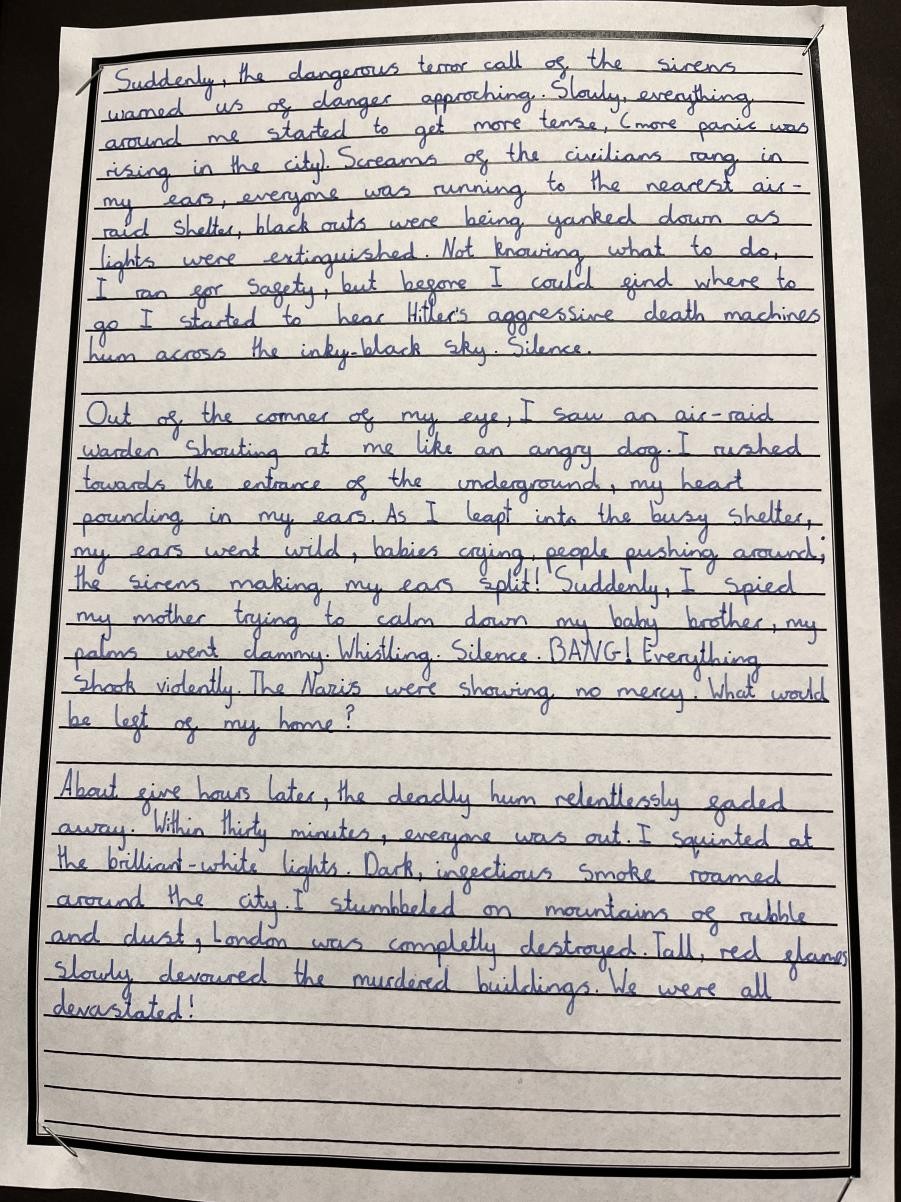 Suddenly, the dangerous terror call of the sirens
warned us of danger approching. Slowly, everything
around me started to get more tense, (more panic was
rising in the city). Screams of the civilians rang in
my ears, everyone was running to the nearest air-
raid shelter, black outs were being yanked down as
lights were extinguished. Not knowing what to do,
I ran for safety, but before I could find where to
go I started to hear Hitler's aggressive death machines
hum across the inky-black sky. Silence.
Out of the corner of my eye, I saw an air-raid
warden shouting at me like an angry dog. I rushed
towards the entrance of the underground, my heart
pounding in my ears. As I leapt into the busy shelter,
my ears went wild, babies crying, people pushing around;
the sirens making my ears split! Suddenly, I spied
my mother trying to calm down my baby brother, my
palms went clammy. Whistling. Silence. BANG! Everything
shook violently. The Nazis were showing no mercy. What would
be left of my home?
About five hours later, the deadly hum relentlessly faded
away. Within thirty minutes, everyone was out. I squinted at
the brilliant-white lights. Dark, infectious smoke roamed
around the city. I stumbbeled on mountains of rubble
and dust, London was completly destroyed. Tall, red flames
slowly devoured the murdered buildings. We were all
devastated!